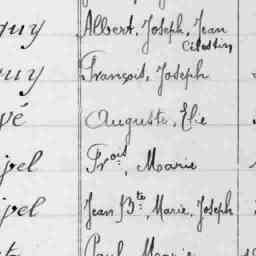 guy Albert, Joseph, Jean
Célestin
guy François, Joseph
vé Auguste, Elie
ipel Frois, Marie
ipel Jean Bte, Marie, Joseph
Paul, Marie